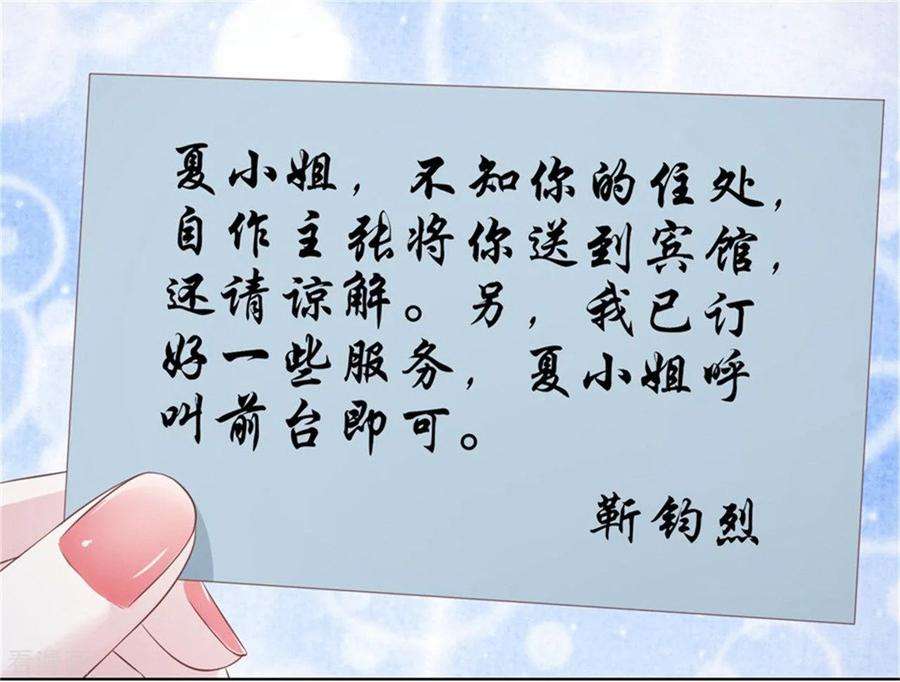 夏小姐，不知你的住处，
自作主张将你送到宾馆，
还请谅解。另，我已订
好一些服务，夏小姐呼
叫前台即可。
靳钧烈